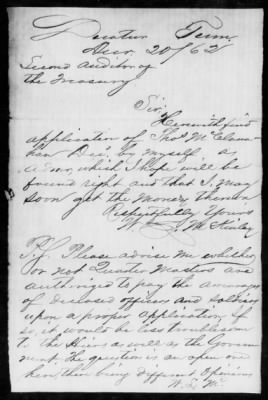 Decatur Tenn
Decr. 20/62
Second Auditor of
the Treasury
Sir,
Herewith find
application of Thos McClana-
han Decd. by myself a
which I hope will be
found right and that I may
soon get the money thereon
Respectfully Yours
W.
P.S. Please advise me whether
or not Quarter Masters are
authorized to pay the arrearages
of deceased officers and soldiers
upon a proper application, If
so, it would be less troublesom
to the Heirs as well as the Govern-
ment. The question is an open one
here, there being different Opinions